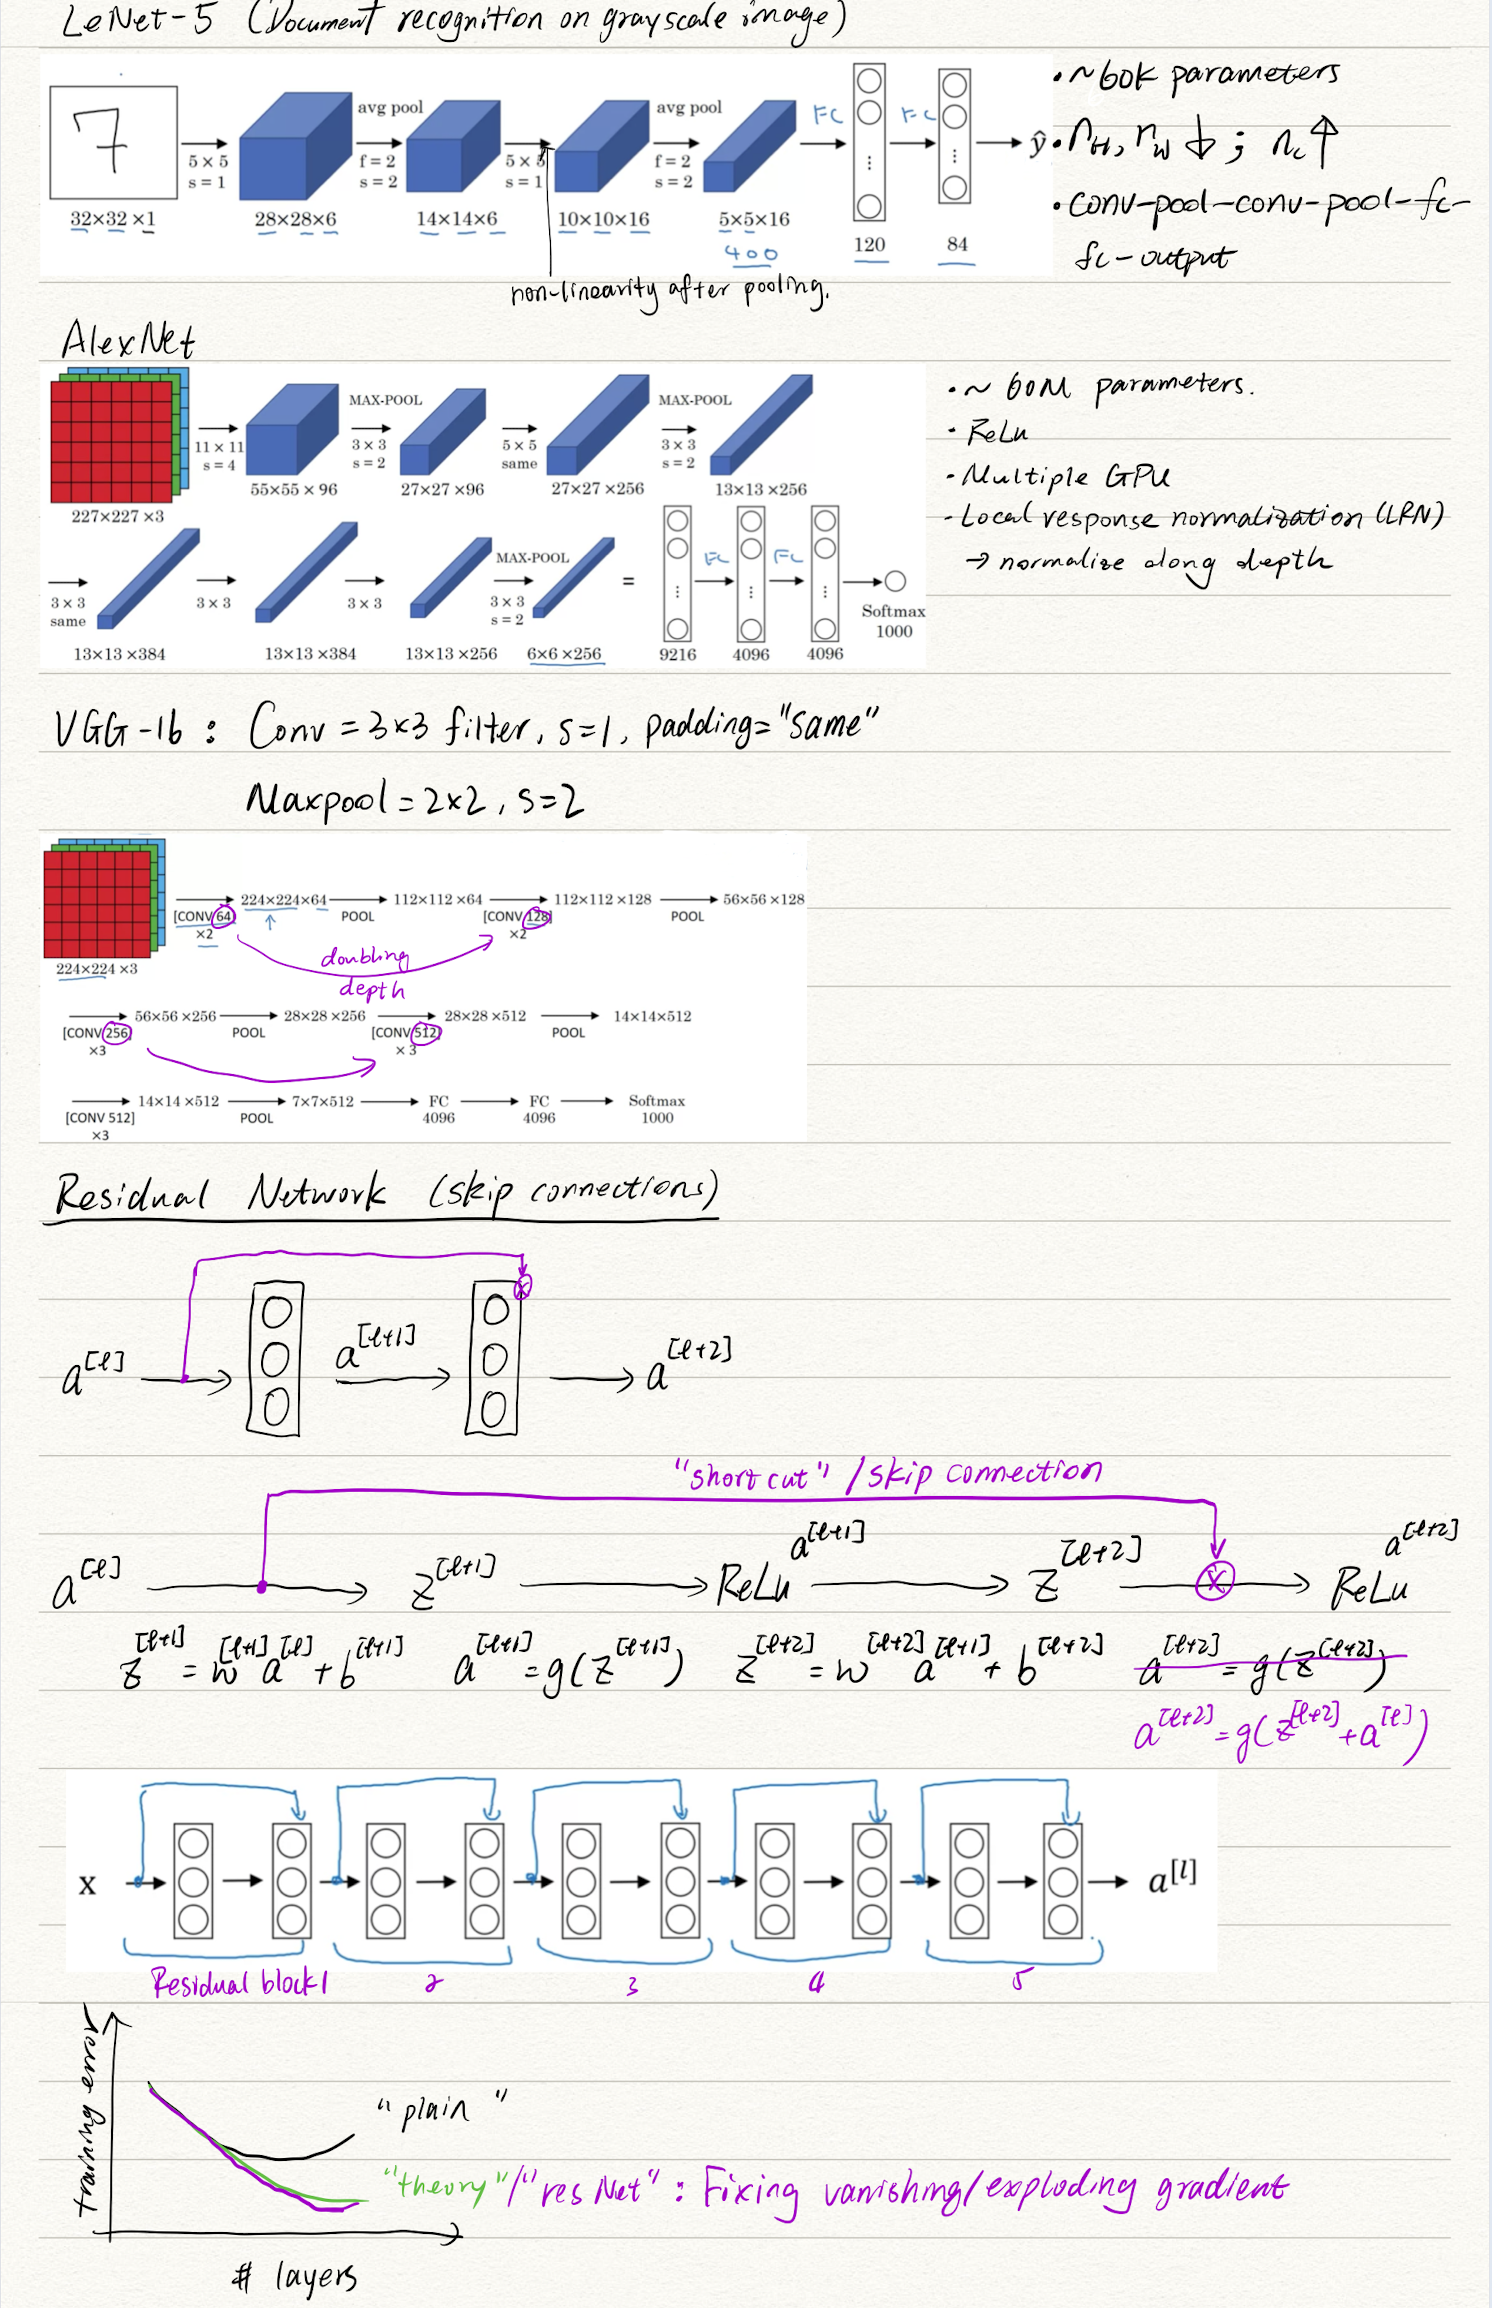 LeNet-5 (Document recognition on grayscale image)
7
5 × 5
s = 1
avg pool
f = 2
s = 2
5 × 5
s = 1
avg pool
f = 2
s = 2
FC
FC
ŷ
32×32 ×1
28×28×6
14×14×6
10×10×16
5×5×16
400
120
84
non-linearity after pooling.
• ~60K parameters
• n_H, n_W ↓ ; n_c ↑
• Conv-pool-conv-pool-fc-
fc-output
AlexNet
227×227 ×3
11 × 11
s = 4
55×55 × 96
MAX-POOL
3 × 3
s = 2
27×27 ×96
5 × 5
same
27×27 ×256
MAX-POOL
3 × 3
s = 2
13×13 ×256
3 × 3
same
13×13 ×384
3 × 3
13×13 ×384
3 × 3
13×13 ×256
MAX-POOL
3 × 3
s = 2
6×6 ×256
=
9216
FC
4096
FC
4096
Softmax
1000
• ~ 60M parameters.
• ReLu
• Multiple GPU
- Local response normalization (LRN)
→ normalize along depth
VGG-16 : Conv = 3×3 filter, s=1, padding="same"
Maxpool = 2×2, s=2
224×224 ×3
[CONV 64]
×2
224×224×64
POOL
112×112 ×64
[CONV 128]
×2
112×112 ×128
POOL
56×56 ×128
doubling
depth
[CONV 256]
×3
56×56 ×256
POOL
28×28 ×256
[CONV 512]
×3
28×28 ×512
POOL
14×14×512
[CONV 512]
×3
14×14 ×512
POOL
7×7×512
FC
4096
FC
4096
Softmax
1000
Residual Network (skip connections)
a[l]
a[l+1]
a[l+2]
"short cut" / skip connection
a[l] z[l+1] ReLu a[l+1] z[l+2] ReLu a[l+2]
z[l+1] = w[l+1] a[l] + b[l+1] a[l+1] = g(z[l+1]) z[l+2] = w[l+2] a[l+1] + b[l+2] a[l+2] = g(z[l+2])
a[l+2] = g(z[l+2] + a[l])
x
a[l]
Residual block 1 2 3 4 5
training error
"plain"
"theory"/"resNet" : Fixing vanishing/exploding gradient
# layers